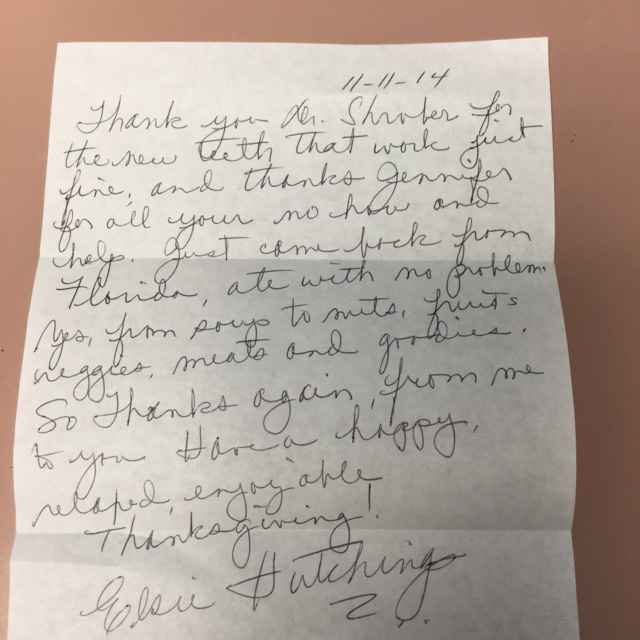 11-11-14
Thank you Dr. Shroter for
the new teeth that work just
fine, and thanks Jennifer
for all your no how and
help. Just came back from
Florida, ate with no problem.
Yes, from soup to nuts, fruits
veggies, meats and goodies.
So Thanks again, from me
to you Have a happy,
relaxed, enjoyable
Thanksgiving!
Elsie Hutchings